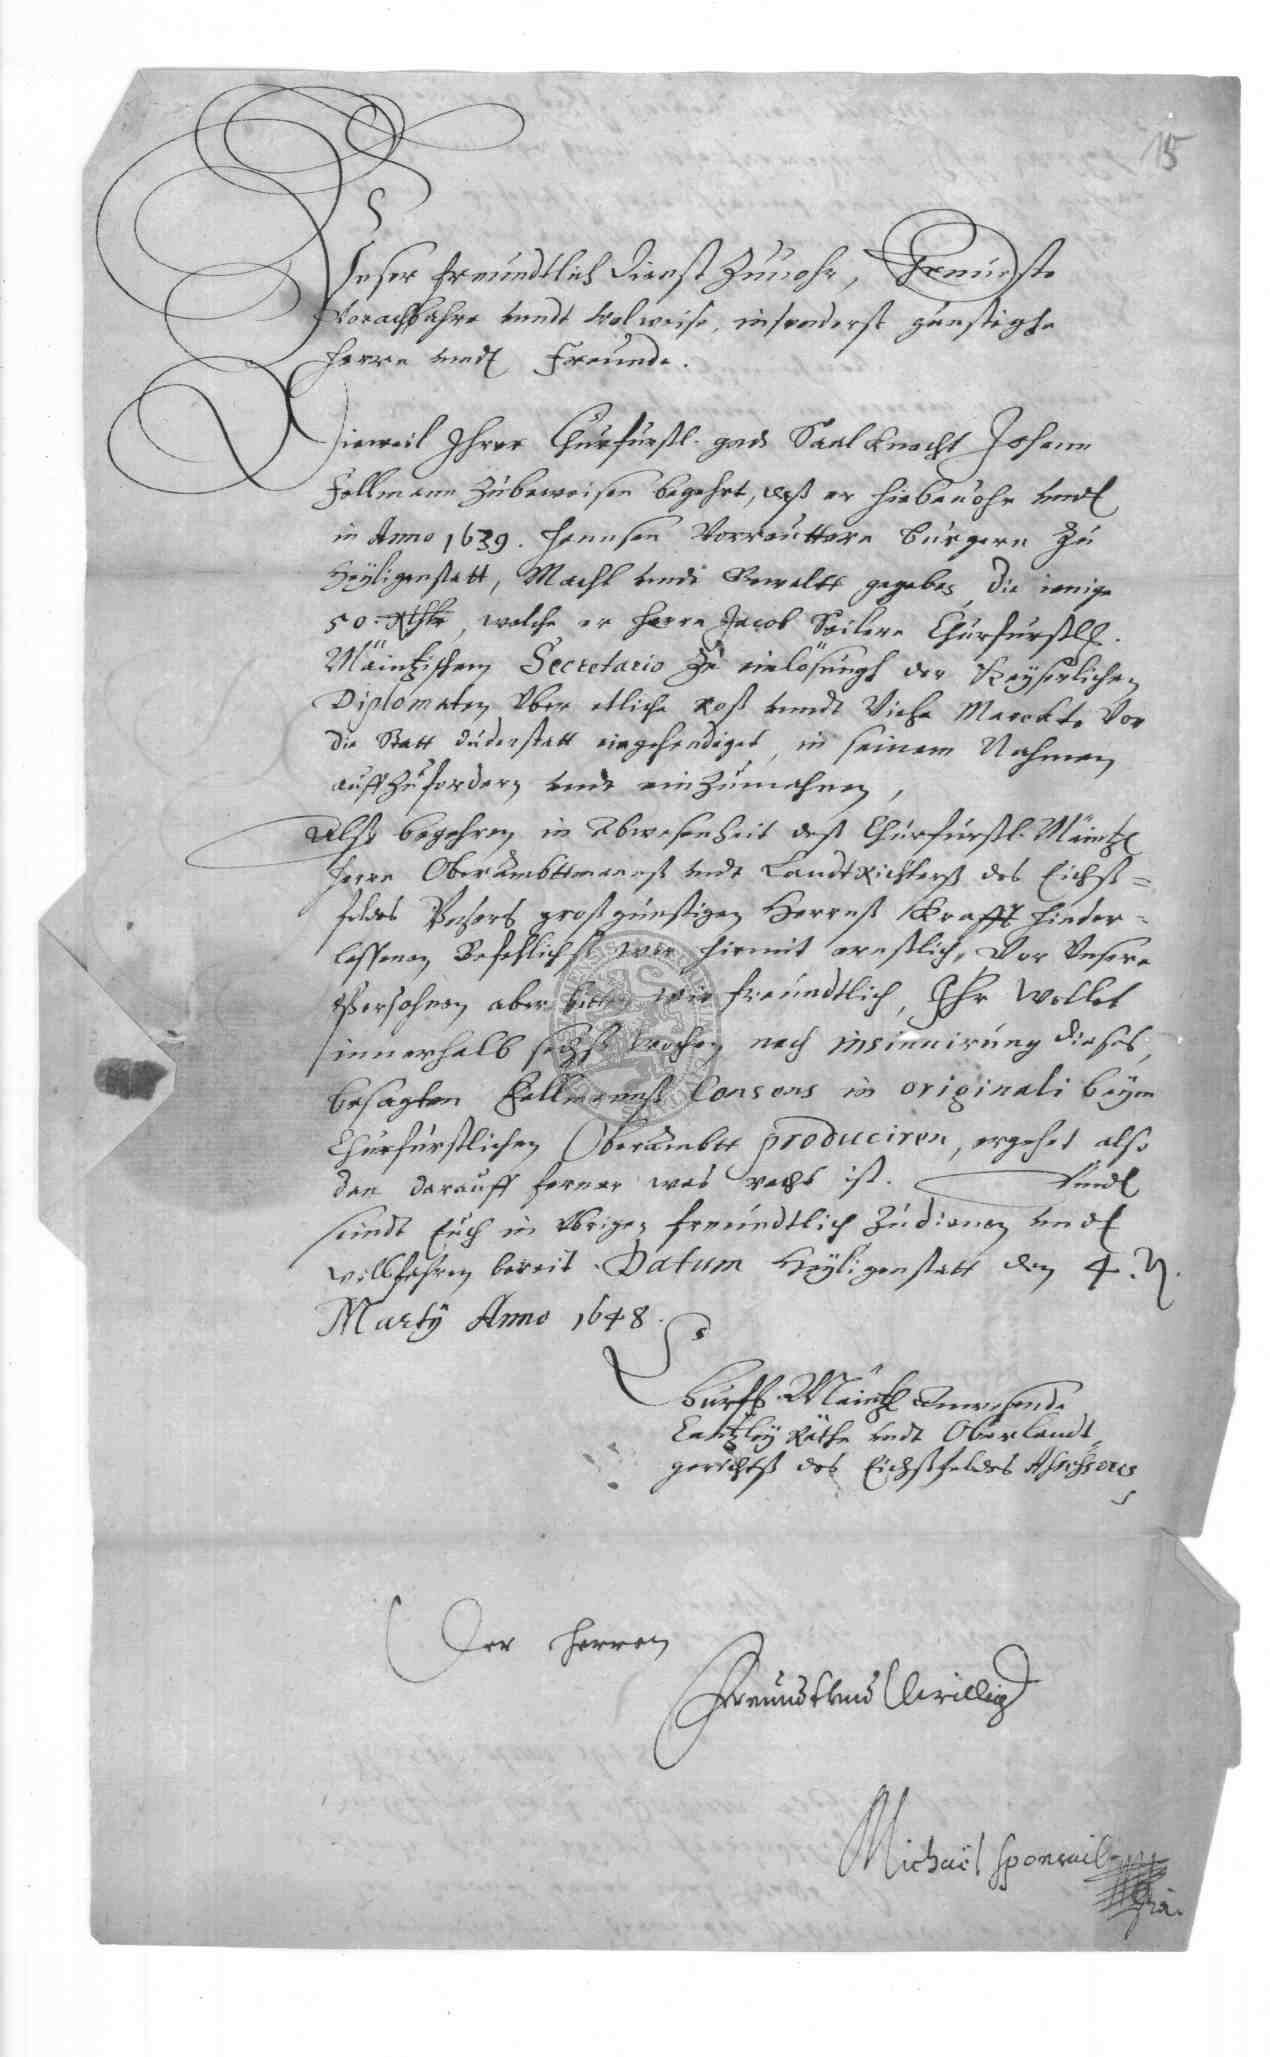 15
Unser freundtlich dienst zuuohr, Ernueste
Vorachtbahre unndt wolweise, insonderst günstighe
Herre undt Freunde.
Dieweil Ihrer Churfürstl. gnd Saal Knecht Johann
Follmann zubeweisen begehrt, daß er hiebeuohr undt
in Anno 1639. Hannsen Vorreuttern bürgern zu
Heyligenstatt, Macht undt Gewaltt gegeben, die ienige
50. Rthlr, welche er Herrn Jacob Seilern Churfürstl.
Mäintzischem Secretario zu einlösungh der Keyserlichen
Diplomaten Uber etliche Roß unndt Viehe Marckte Vor
die Statt duderstatt eingehendiget, in seinem Nahmen
auffzufordern undt einzumahnen,
Alß begehren in Abwesenheit deß Churfürstl. Mäintz
Herrn Oberambttmanß undt LandtRichterß des Eichß=
feldes Unsers großgünstigen Herrnß Krafft hinder=
lassenen Befehlichß wir hiemit ernstlich, Vor Unsere
Persohnen aber bitten wir freundtlich, Ihr wollet
innerhalb sechß wochen nach insinuirung dieses,
besagten Follmannß Consens in originali beym
Churfürstlichen Oberambtt produciren, ergehet alß
dan darauff ferner was recht ist. Undt
seindt Euch in übrigen freundtlich zudienen undt
willfahren bereit. Datum Heyligenstatt den 4. N.
Martÿ Anno 1648.
Churf. Mäintz Anwesende
Cantzley Räthe undt Oberlandt
gerichtß des Eichßfeldes Assessores
Der Herren
Freundtlich Willig
Michaël